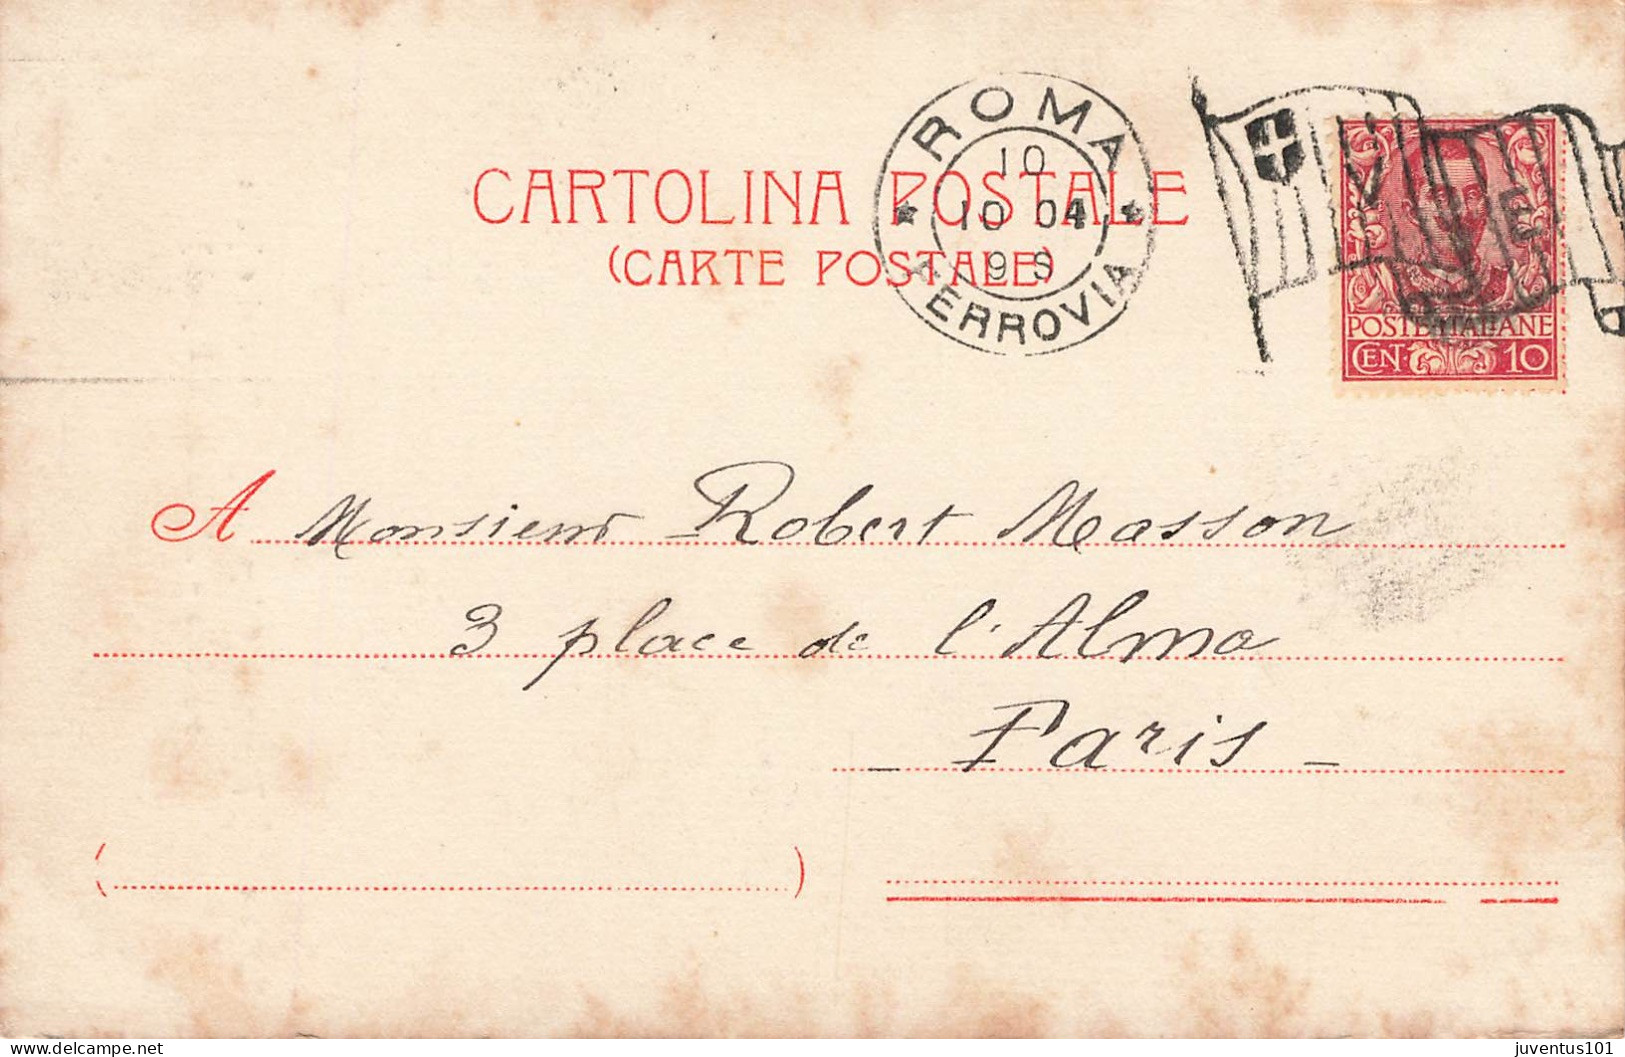 ROMA
10
10 04
9 S
FERROVIA
V E
CARTOLINA POSTALE
(CARTE POSTALE)
POSTE ITALIANE
CEN. 10
A Monsieur Robert Masson
3 place de l'Alma
_ Paris _
( )
juventus101